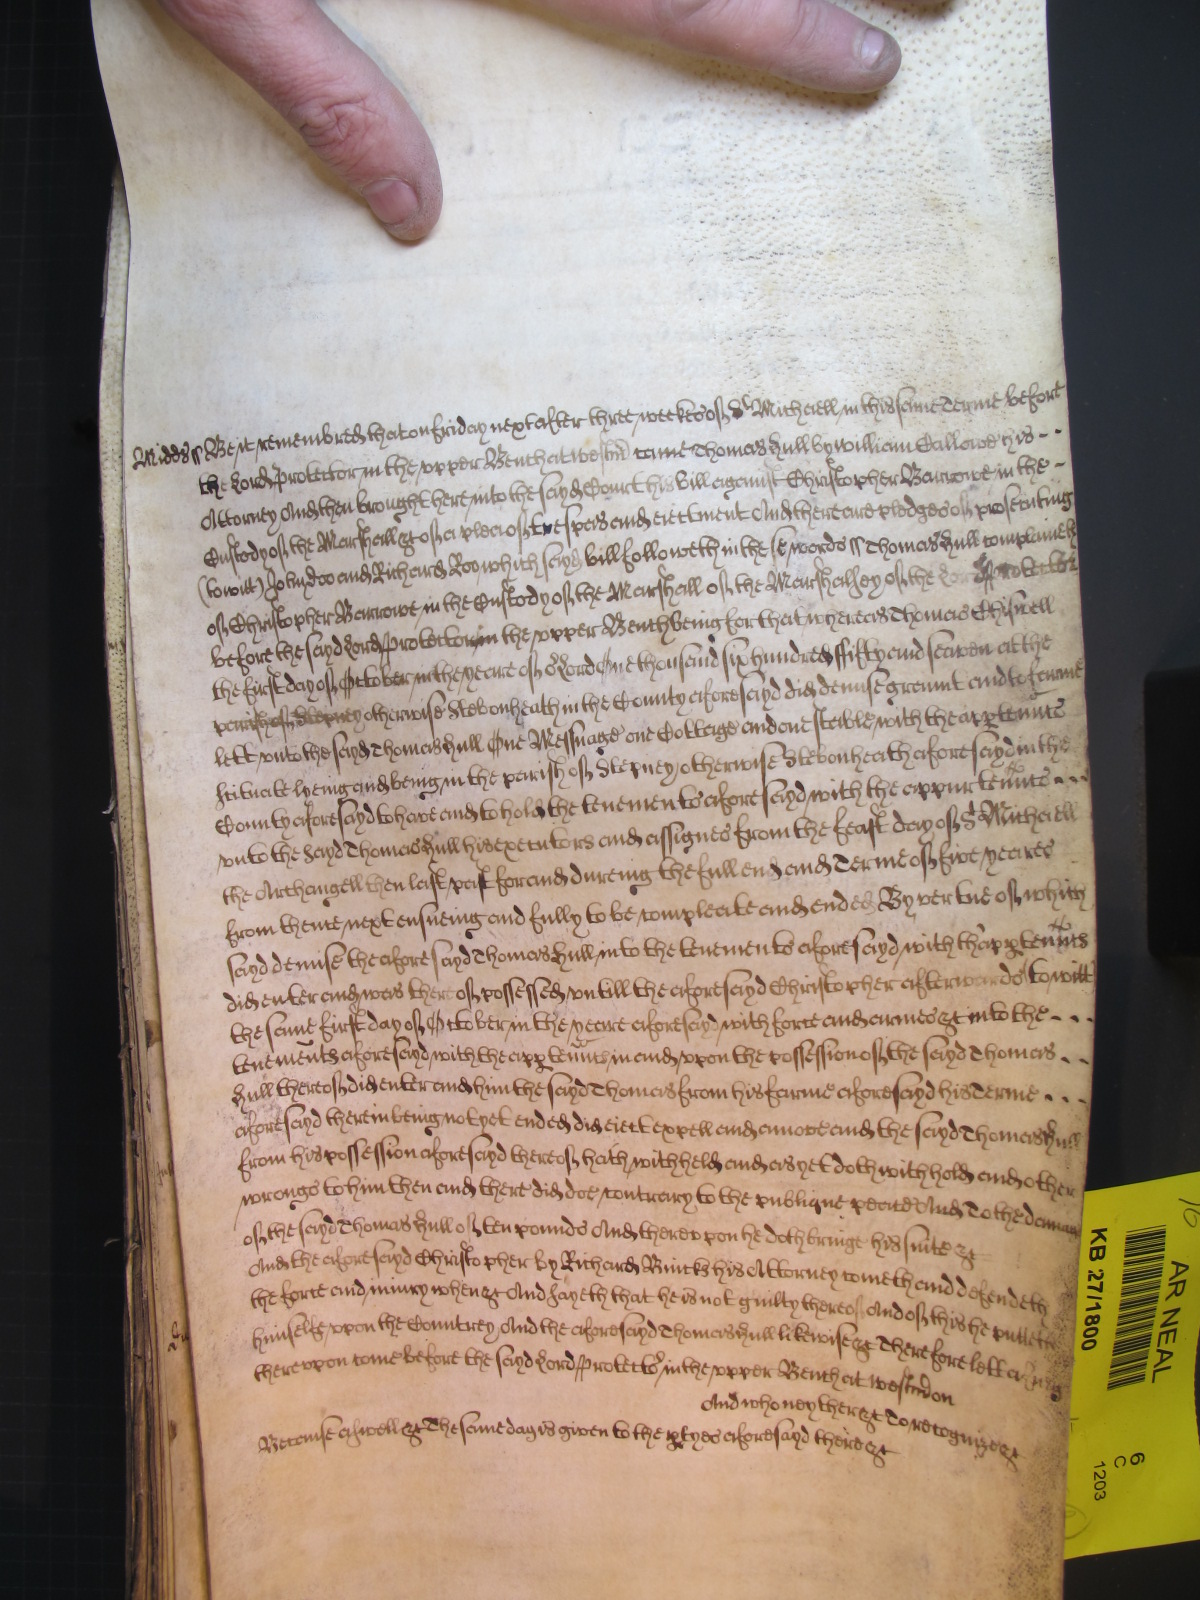 Midds ss Be it remembred that on friday next after three weekes of St Michaell in this same Terme before
the Lord Protector in the upper Bench at westm̃ came Thomas Hull by william Callowe his - -
Attorney And then brought here into the sayd Court his bill against Christopher Barrowe in the -
Custody of the Marshall &c of a plea of trespas and eiectment And there are pledges of prosecuting
(to witt) John doo and Richard Roo which sayd bill followeth in these words ss Thomas Hull complaineth
of Christopher Barrowe in the Custody of the Marshall of the Marshalsey of the Lord Protector
before the sayd Lord Protector in the upper Bench being for that whereas Thomas Chiswell
the first day of October in the yeare of or Lord One thousand six hundred ffifty and seaven at the
parish of Stepney otherwise Stebonheath in the County aforesayd did demise graunt and to farme
lett unto the sayd Thomas Hull One Messuage one Cottage and one stable with the apptenncs
scituate lyeing and being in the parish of Stepney otherwise Stebonheath aforesayd in the
County aforesayd to have and to hold the tenements aforesayd with the appurtenncs - - -
unto the sayd Thomas Hull his executors and assignes from the feast day of St Michaell
the Archangell then last past for and dureing the full end and Terme of five yeares
from thence next ensueing and fully to be compleate and ended By vertue of which
sayd demise the aforesayd Thomas Hull into the tenements aforesayd with thapptenncs
did enter and was thereof possessed untill the aforesayd Christopher afterwards to witt
the same first day of October in the yeare aforesayd with force and armes &c into the - - -
tenements aforesayd with the apptenncs in and upon the possession of the sayd Thomas - -
Hull thereof did enter and him the sayd Thomas from his farme aforesayd his Terme - - -
aforesayd therein being not yet ended did eiect expell and amove and the sayd Thomas Hull
from his possession aforesayd thereof hath withheld and as yet doth withhold and other
wrongs to him then and there did doe contrary to the publique peace And To the damage
of the sayd Thomas Hull of ten pounds And thereupon he doth bringe his suite &c
And the aforesayd Christopher by Richard Buncks his Attorney cometh and defendeth
the force and iniury when &c And sayeth that he is not guilty thereof And of this he putteth
himselfe upon the Countrey And the aforesayd Thomas Hull likewise &c Therefore lett a Jury
thereupon come before the sayd Lord Protector in the upper Bench at westm̃ on
And who neyther &c To recognize &c
Because aswell &c The same day is given to the ptyes aforesayd there &c
AR NEAL
KB 27/1800
6
C
1203